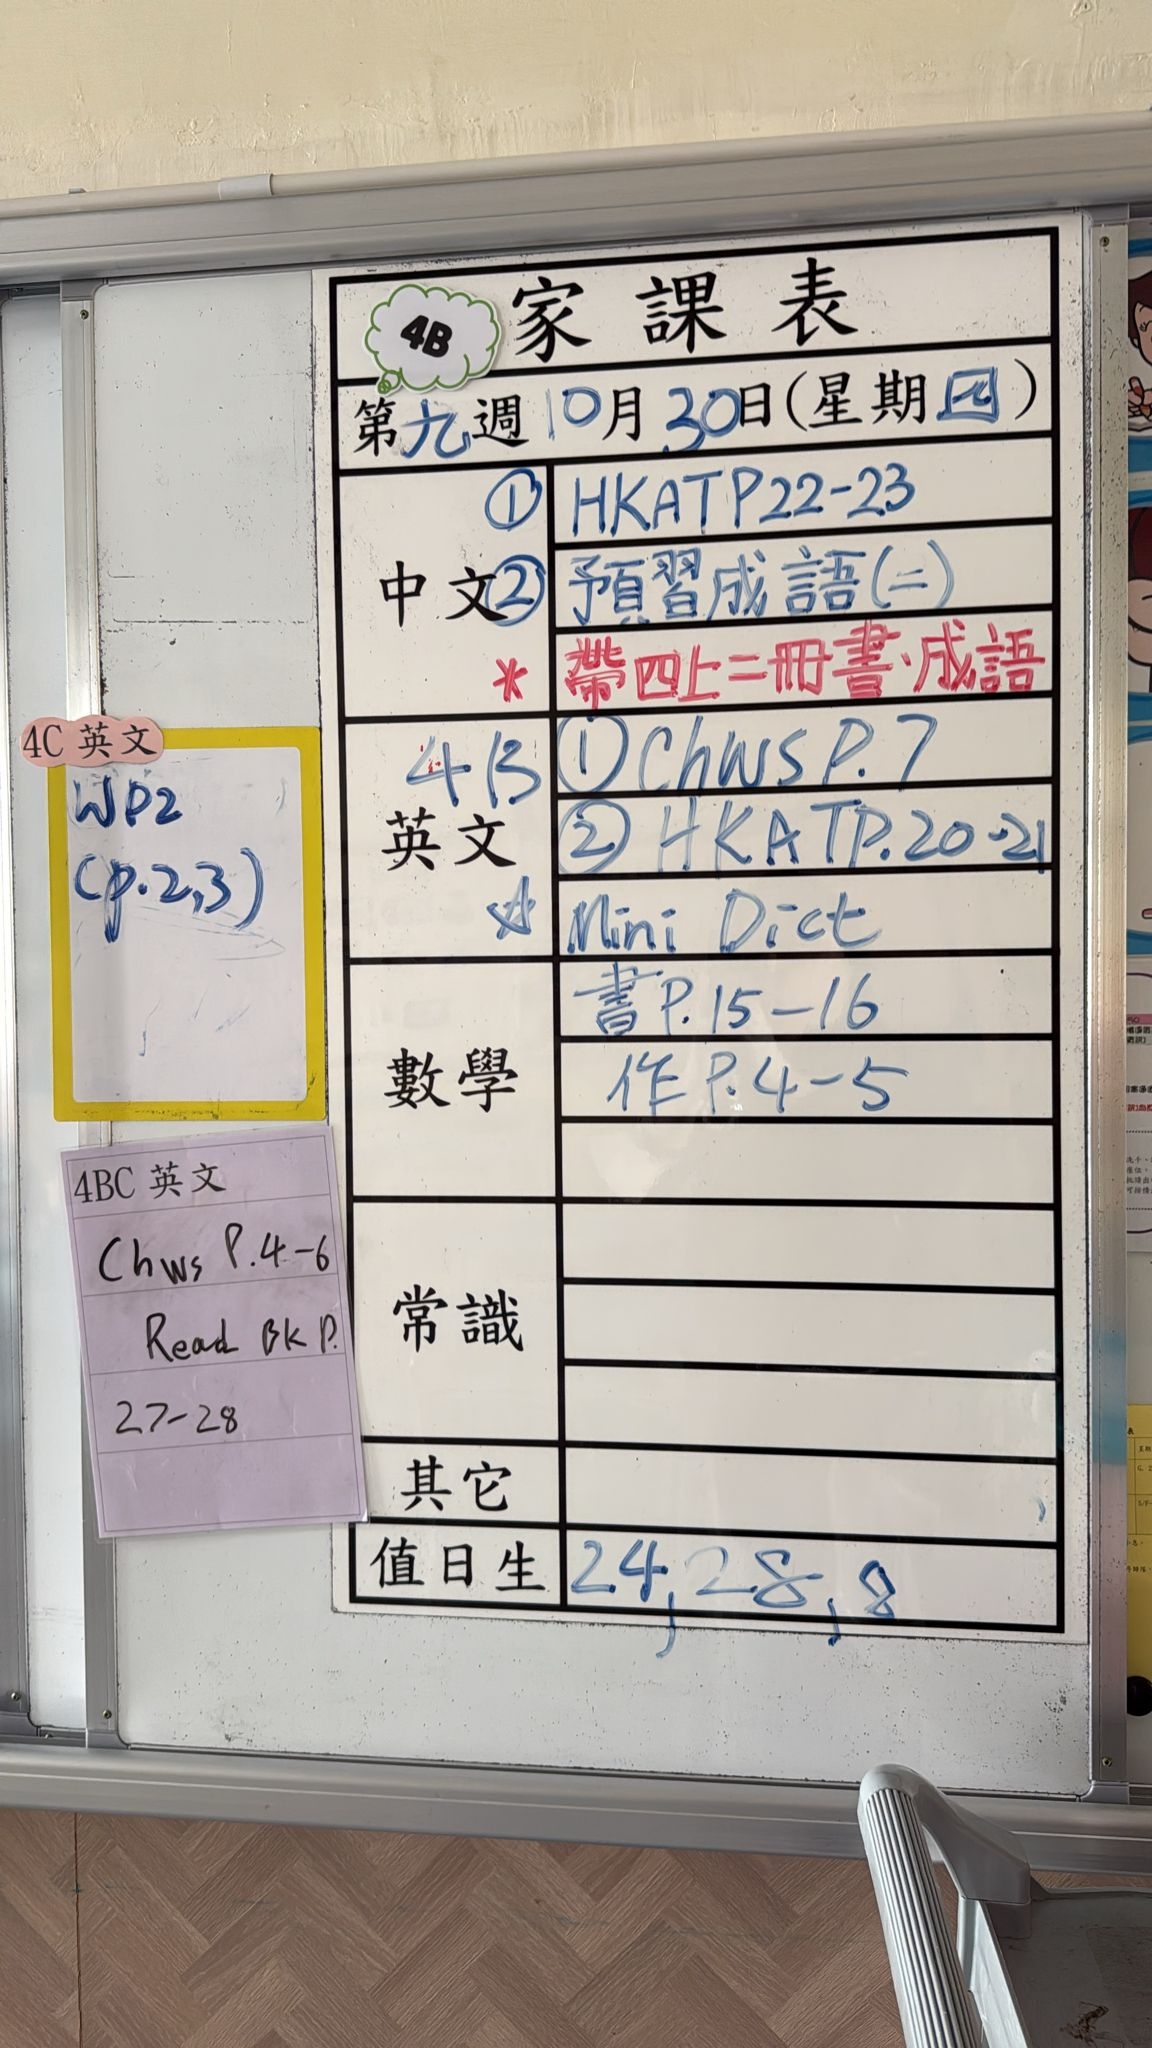 4B
家課表
第九週10月30日(星期四)
中文
① HKAT P22-23
② 預習成語(二)
* 帶四上二冊書、成語
英文
4B ① Chws P.7
② HKAT P.20-21
☆ Mini Dict
數學
書 P.15-16
作 P.4-5
常識
其它
值日生
24, 28, 8
4C 英文
WP2
(p.2,3)
4BC 英文
Chws P.4-6
Read BK P.
27-28